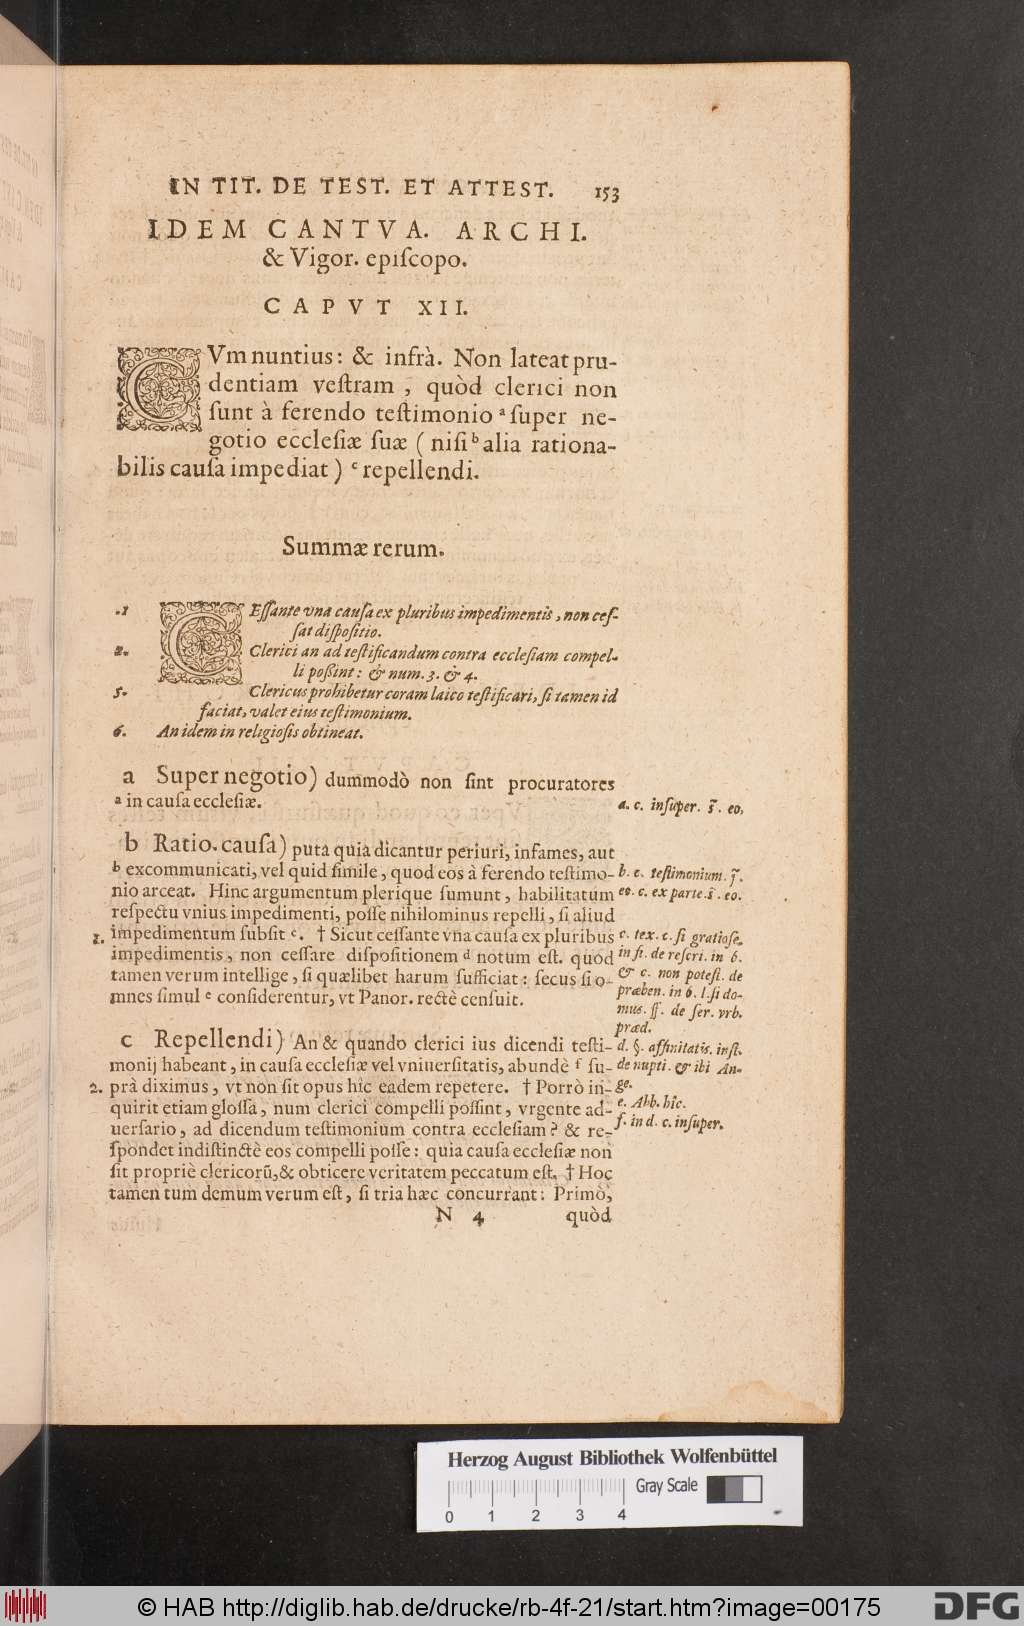 IN TIT. DE TEST. ET ATTEST. 153
IDEM CANTVA. ARCHI.
& Vigor. epiſcopo.
CAPVT XII.
CVm nuntius: & infrà. Non lateat pru-
dentiam veſtram, quòd clerici non
ſunt à ferendo teſtimonio ᵃ ſuper ne-
gotio eccleſiæ ſuæ (niſi ᵇ alia rationa-
bilis cauſa impediat) ᶜ repellendi.
Summæ rerum.
.1 CEſſante vna cauſa ex pluribus impedimentis, non ceſ-
ſat diſpoſitio.
2. Clerici an ad teſtificandum contra eccleſiam compel-
li poßint: & num. 3. & 4.
5. Clericus prohibetur coram laico teſtificari, ſi tamen id
faciat, valet eius teſtimonium.
6. An idem in religioſis obtineat.
a Super negotio) dummodò non ſint procuratores
ᵃ in cauſa eccleſiæ.
a. c. inſuper. ſ̃. eo.
b Ratio. cauſa) puta quia dicantur periuri, infames, aut
ᵇ excommunicati, vel quid ſimile, quod eos à ferendo teſtimo-
nio arceat. Hinc argumentum plerique ſumunt, habilitatum
reſpectu vnius impedimenti, poſſe nihilominus repelli, ſi aliud
1. impedimentum ſubſit ᶜ. † Sicut ceſſante vna cauſa ex pluribus
impedimentis, non ceſſare diſpoſitionem ᵈ notum eſt. quod
tamen verum intellige, ſi quælibet harum ſufficiat: ſecus ſi o-
mnes ſimul ᵉ conſiderentur, vt Panor. rectè cenſuit.
b. c. teſtimonium. ſ̃.
eo. c. ex parte. ſ̃. eo.
c. tex. c. ſi gratioſe.
in fi. de reſcri. in 6.
& c. non poteſt. de
præben. in 6. l. ſi do-
mus. ff. de ſer. vrb.
præd.
c Repellendi) An & quando clerici ius dicendi teſti-
monij habeant, in cauſa eccleſiæ vel vniuerſitatis, abundè ᶠ ſu-
2. prà diximus, vt non ſit opus hîc eadem repetere. † Porrò in-
quirit etiam gloſſa, num clerici compelli poſſint, vrgente ad-
uerſario, ad dicendum teſtimonium contra eccleſiam? & re-
ſpondet indiſtinctè eos compelli poſſe: quia cauſa eccleſiæ non
ſit propriè clericorũ, & obticere veritatem peccatum eſt. † Hoc
tamen tum demum verum eſt, ſi tria hæc concurrant: Primò,
d. §. affinitatis. inſt.
de nupti. & ibi An-
ge.
e. Abb. hîc.
f. in d. c. inſuper.
N 4 quòd
Herzog August Bibliothek Wolfenbüttel
Gray Scale
0 1 2 3 4
© HAB http://diglib.hab.de/drucke/rb-4f-21/start.htm?image=00175
DFG